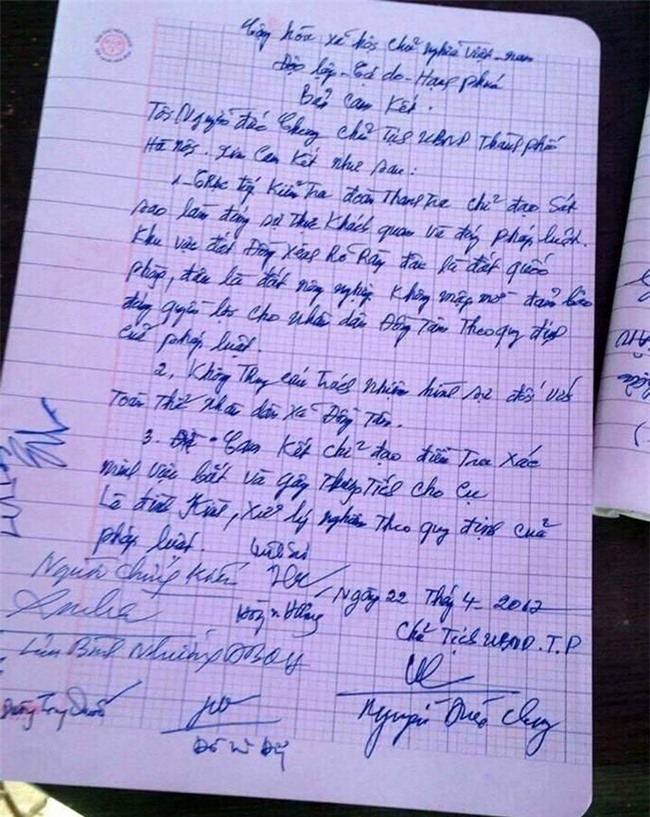 Cộng hòa xã hội chủ nghĩa Việt-nam
Độc lập-Tự do-Hạnh phúc
Bản Cam Kết.
Tôi Nguyễn đức Chung chủ Tịch UBND Thành phố
Hà Nội. Xin Cam Kết như sau:
1- Trực tiếp Kiểm Tra đoàn Thanh Tra chỉ đạo Sát
sao làm đúng sự thật Khách quan và đúng pháp luật.
Khu vực đất Đồng Xênh Rõ Ràng đâu là đất quốc
phòng, đâu là đất nông nghiệp. Không mập mờ đảm bảo
đúng quyền lợi cho nhân dân Đồng Tâm Theo quy định
của pháp luật.
2, Không Truy cứu Trách nhiệm hình sự đối với
Toàn Thể nhân dân xã Đồng Tâm.
3. Cam Kết chỉ đạo điều Tra Xác
minh việc bắt và gây Thương Tích cho Cụ
Lê đình Kình, Xử lý nghiêm Theo quy định của
pháp luật.
Người Chứng Kiến
Ngày 22 Tháng 4-2017
Chủ Tịch UBND.T.P
Lưu Bình Nhưỡng ĐBQH
Nguyễn Đức Chung